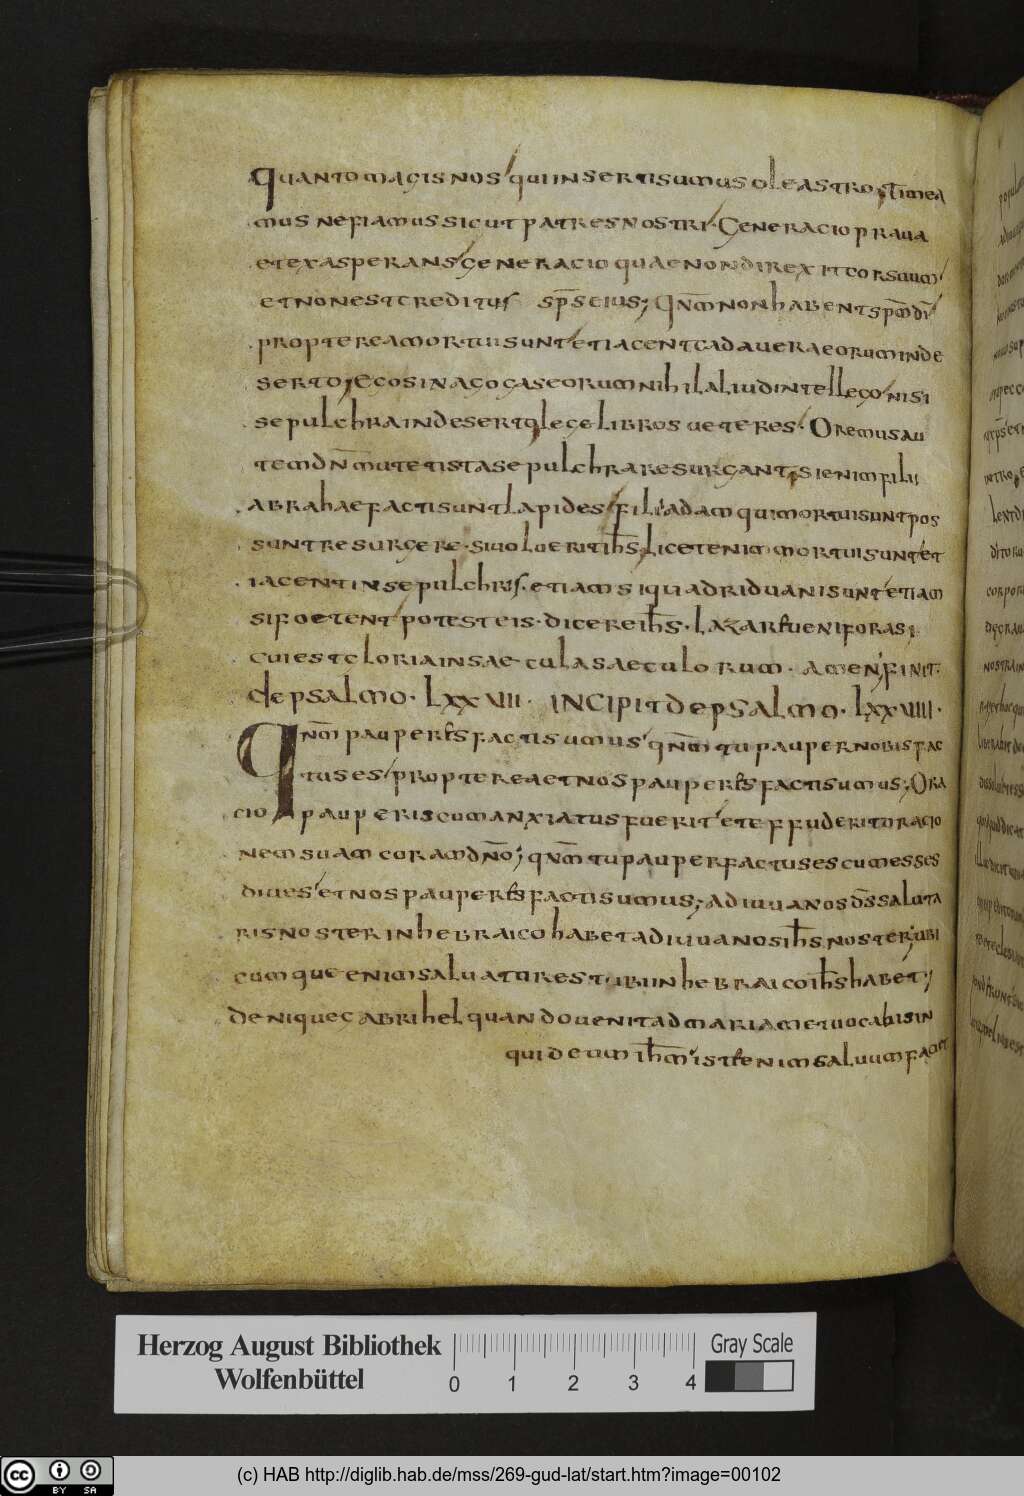 quanto magis nos qui inserti sumus oleastro; timea
mus ne fiamus sicut patres nostri. Generacio praua
et exasperans generacio quae non direxit cor suum
et non est creditus sp̄s eius; qn̄m non habent sp̄m dī
propterea mortui sunt et iacent cadauera eorum in de
serto; Ego sinagogas eorum nihil aliud intellego nisi
sepulchra in deserto lege libros ueteres. Oremus au
tem dn̄m ut et ista sepulchra resurgant, si enim filii
abrahae facti sunt lapides filii adam qui mortui sunt pos
sunt resurgere. si uoluerit ih̄s licet enim mortui sunt et
iacent in sepulchris. etiam si quadriduani sunt etiam
si foetent potest eis dicere ih̄s. lazare ueni foras;
cui est gloria in saecula saeculorum. amen; finit.
de psalmo. lxxvii. incipit de psalmo. lxxviiii.
Qn̄m pauperes facti sumus qn̄m tu pauper nobis fac
tus es propterea et nos pauperes facti sumus; Ora
cio pauperis cum anxiatus fuerit et effuderit oracio
nem suam coram dn̄o; qn̄m tu pauper factus es cum esses
diues et nos pauperes facti sumus; adiuua nos ds̄ saluta
ris noster in hebraico habet adiuua nos ih̄s noster; ubi
cumque enim saluatur est ubi in hebraico ih̄s habet;
denique gabrihel quando uenit ad mariam et uocabis in
quid eum ih̄m iste enim saluum faciet
Herzog August Bibliothek
Wolfenbüttel
0 1 2 3 4
Gray Scale
cc BY SA
(c) HAB http://diglib.hab.de/mss/269-gud-lat/start.htm?image=00102